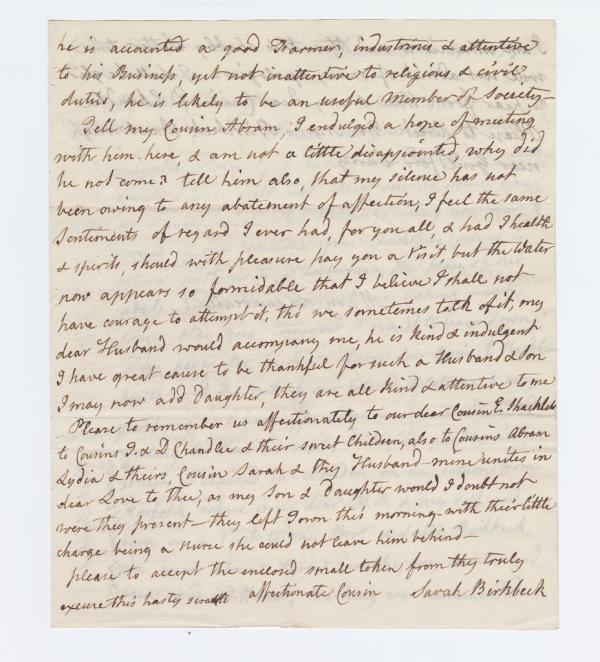 he is accounted a good Farmer, industrious & attentive
to his Business yet not inattentive to religious & civil
duties, he is likely to be an useful Member of Society—
Tell my Cousin Abram, I endulged a hope of meeting
with him here, & am not a little disappointed, why did
he not come? tell him also, that my silence has not
been owing to any abatement of affection, I feel the same
Sentiments of regard I ever had, for you all, & had I health
& spirits, should with pleasure pay you a Visit, but the Water
now appears so formidable that I believe I shall not
have courage to attempt it, tho' we sometimes talk of it, my
dear Husband would accompany me, he is kind & indulgent
I have great cause to be thankful for such a Husband & Son
I may now add Daughter, they are all kind & attentive to me
Please to remember us affectionately to our dear Cousin E. Shackleton
to Cousins J. & D Chandlee & their sweet Children, also to Cousins Abram
Lydia & theirs, Cousin Sarah & thy Husband—mine unites in
dear Love to thee, as my Son & Daughter would I doubt not
were they present—they left Town this morning—with their little
charge being a Nurse she could not leave him behind—
please to accept the enclosed small token from thy truly
excuse this hasty scrawl affectionate Cousin Sarah Birkbeck